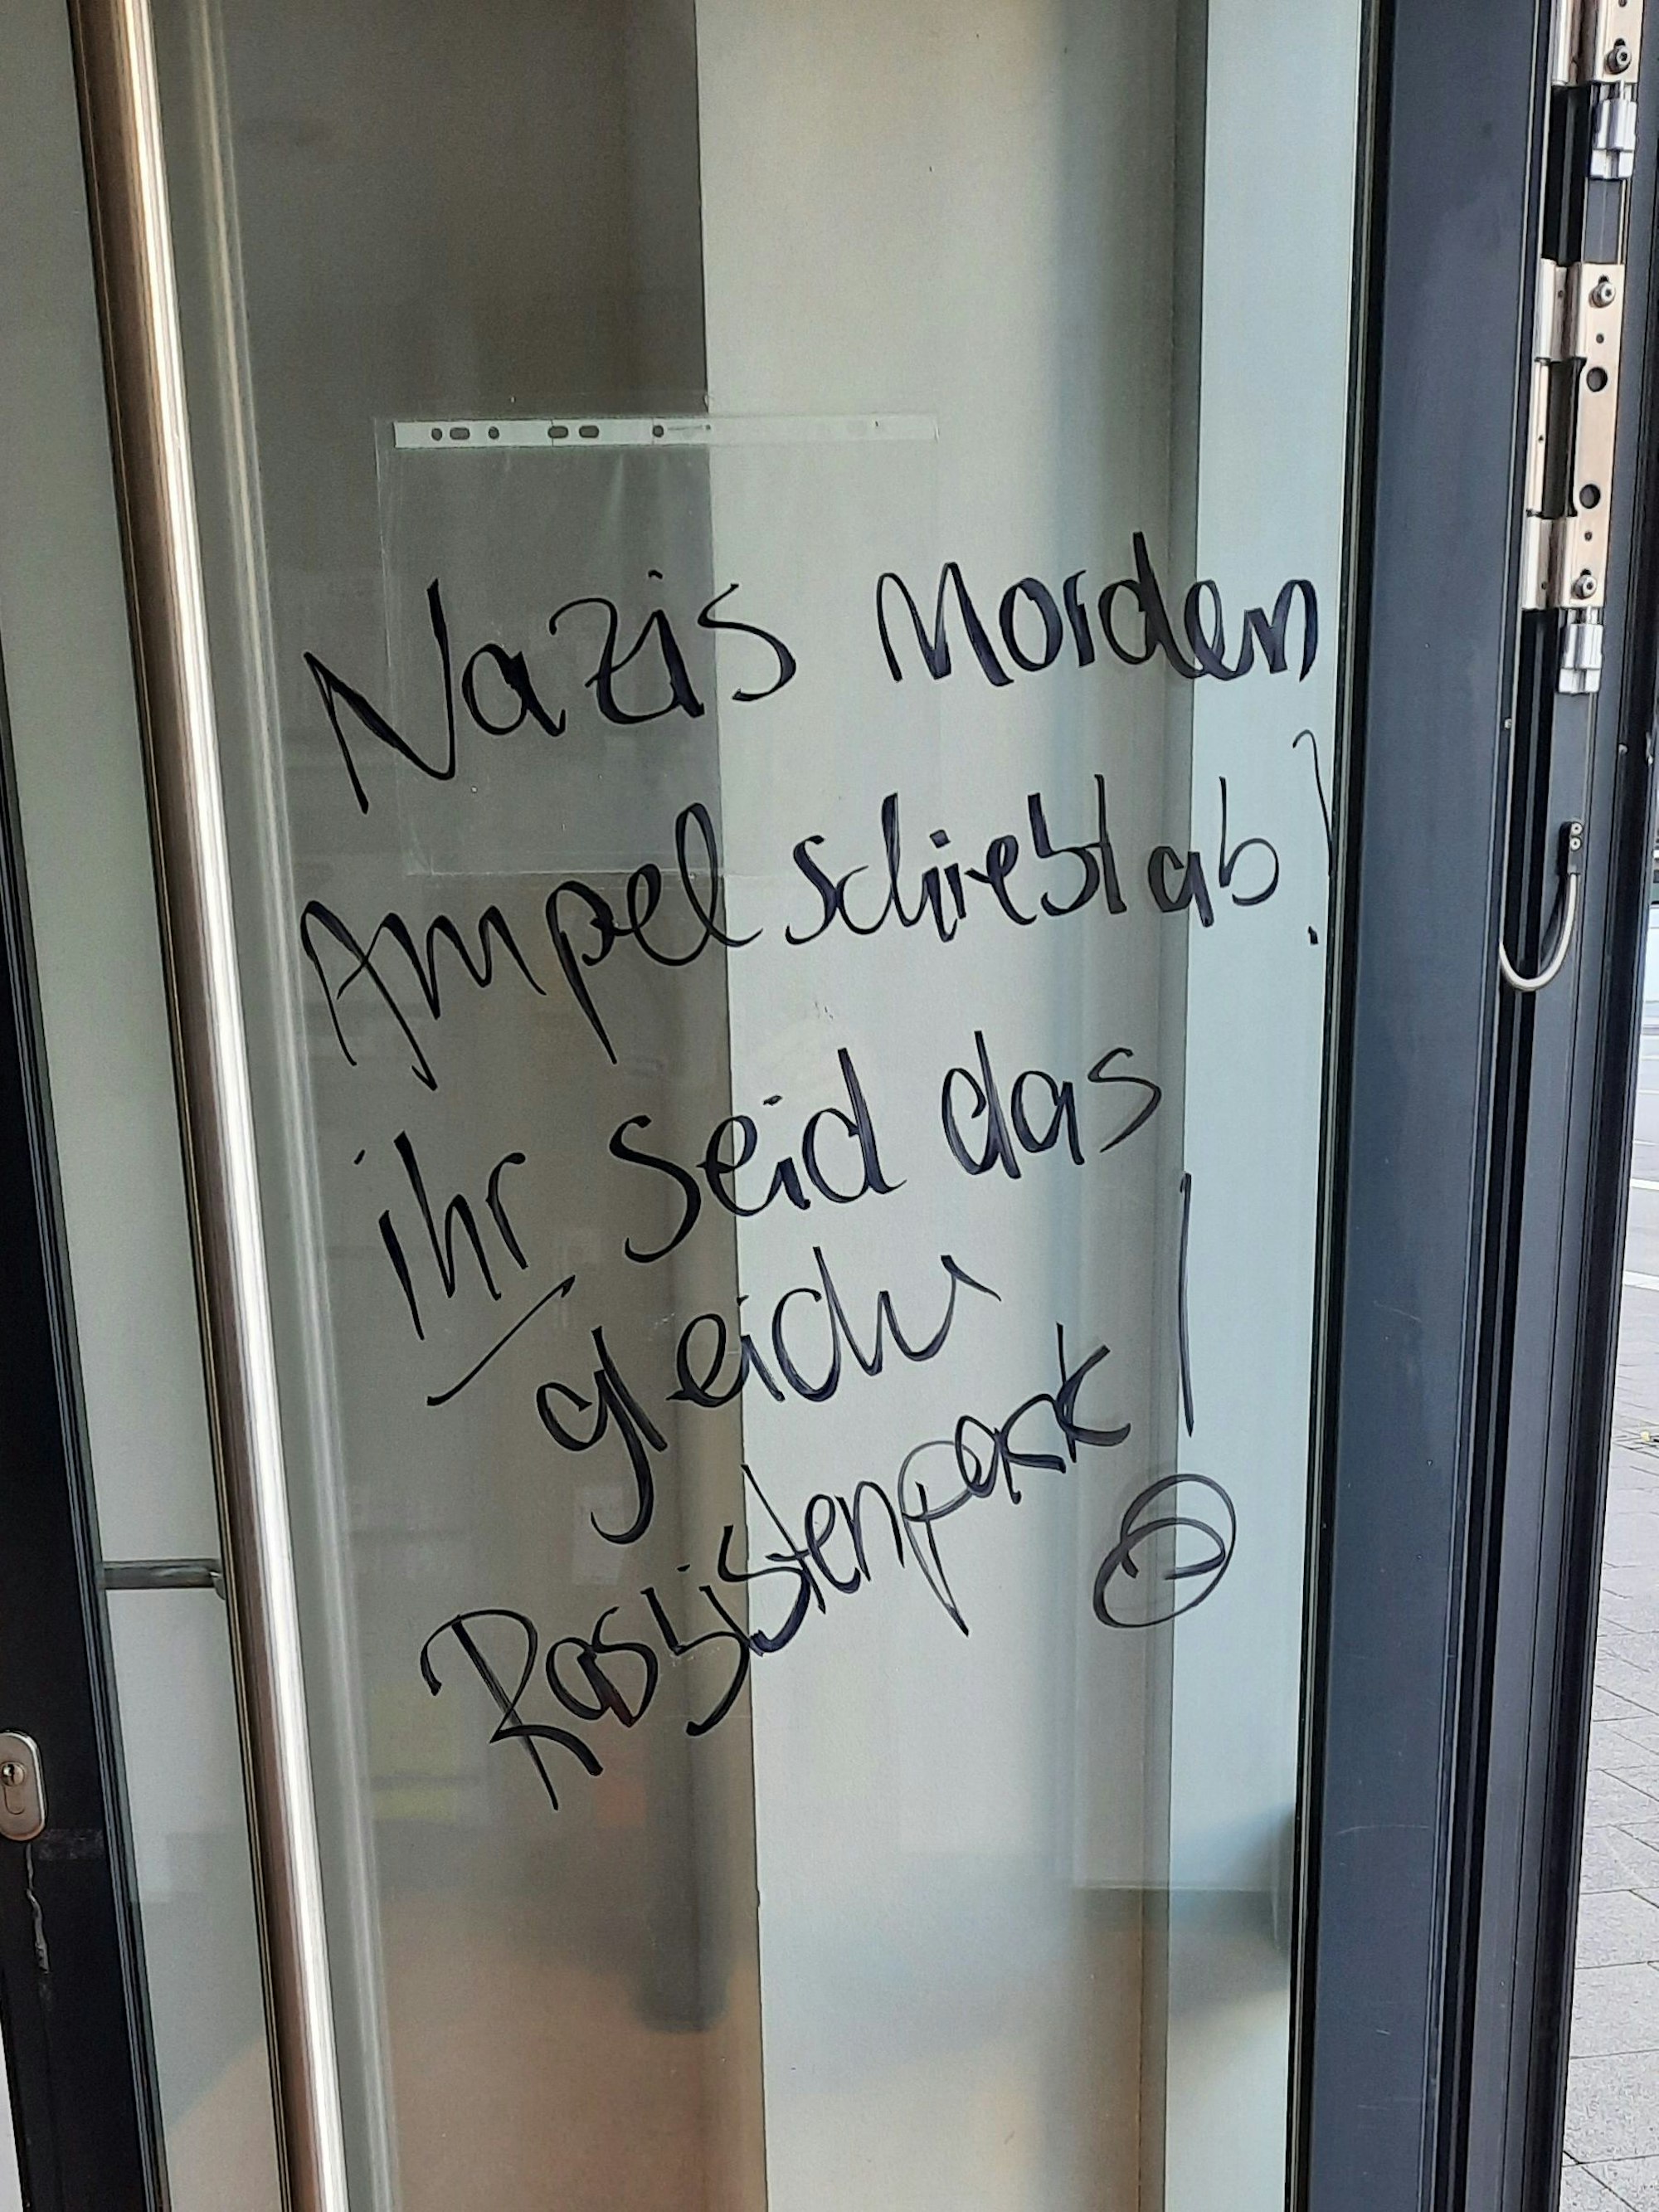 Nazis Morden
Ampel schiebt ab!
ihr seid das
gleiche
Rassistenpack!